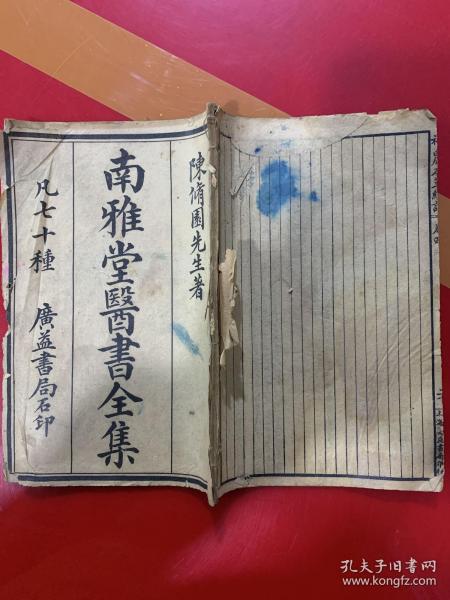 陳脩園先生著
南雅堂醫書全集
凡七十種
廣益書局石印
孔夫子旧书网
www.kongfz.com